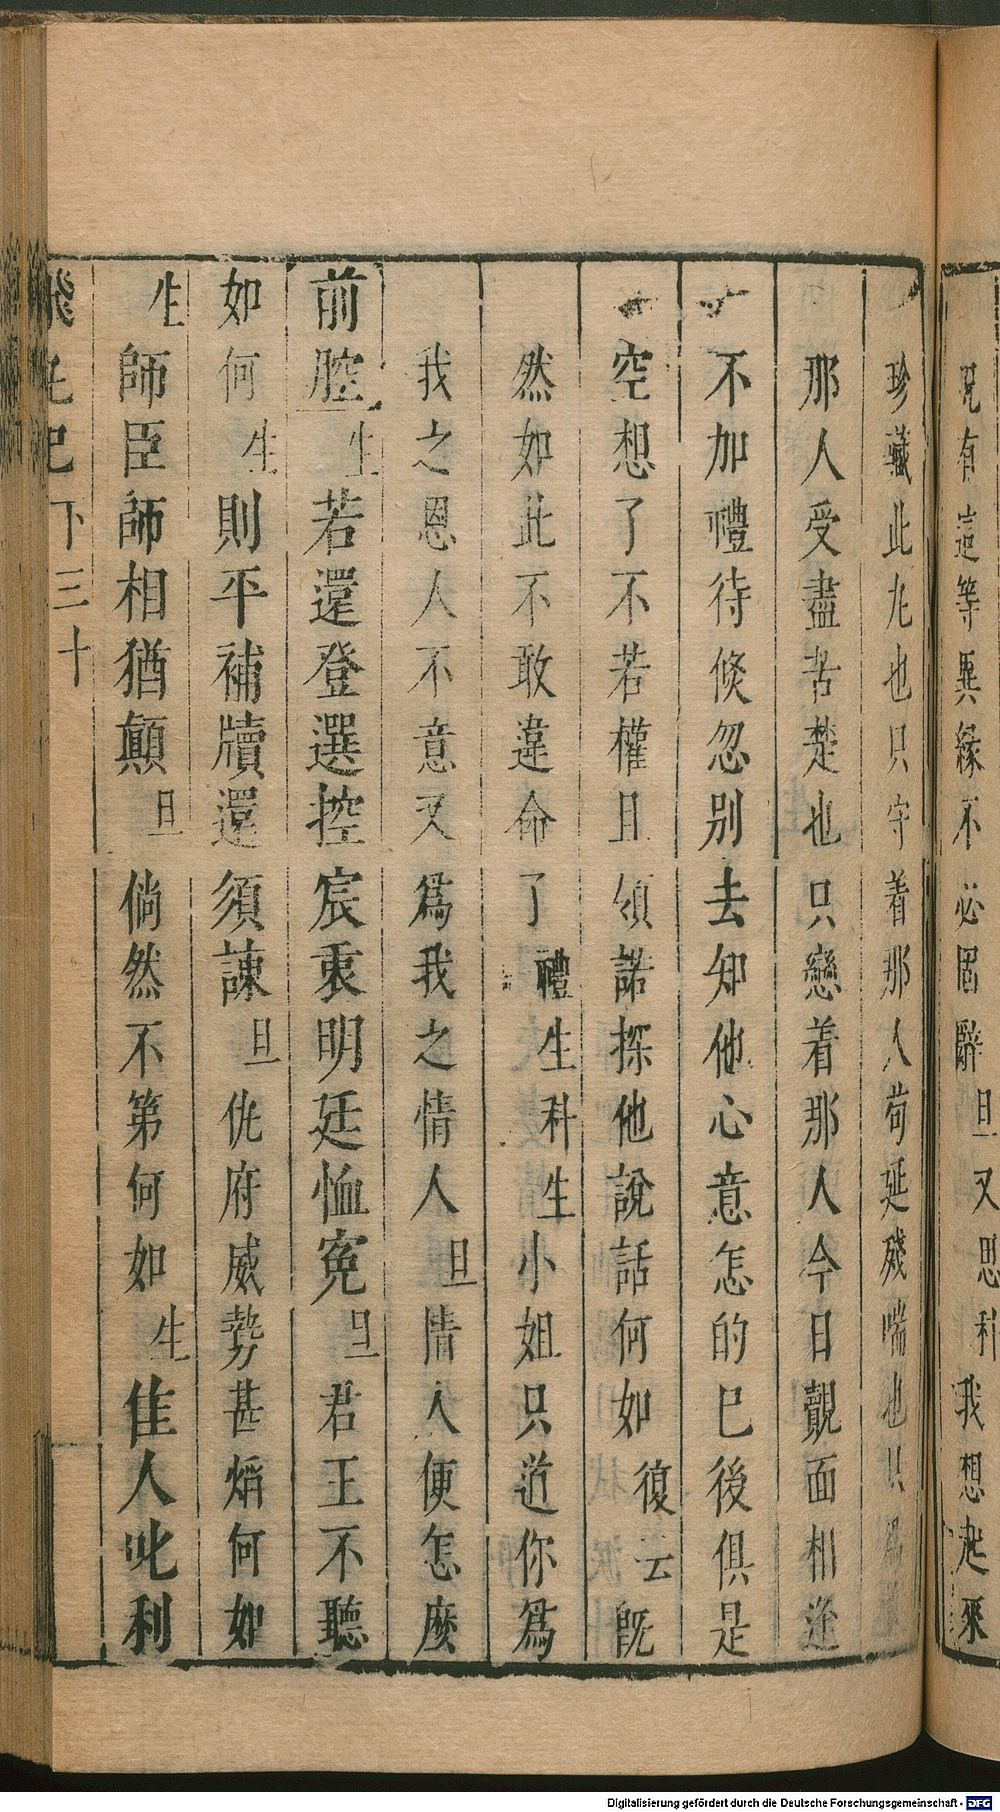 況有這等異緣不必固辭旦又思科我想起來
珍藏此九也也只守着那人苟延殘喘也只爲
那人受盡苦楚也只戀着那人今日覿面相逢
不加禮待倐忽別去知他心意怎的已後俱是
空想了不若權且領諾探他說話何如復云旣
然如此不敢違命了禮生科生小姐只道你爲
我之恩人不意又爲我之情人旦情人便怎麽
前腔生若還登選控宸衷明廷恤寃旦君王不聽
如何生則平補牘還須諫旦仇府威勢甚熖何如
生師臣師相猶顛旦倘然不第何如生隹人叱利
飛丸記下三十
Digitalisierung gefördert durch die Deutsche Forschungsgemeinschaft - DFG